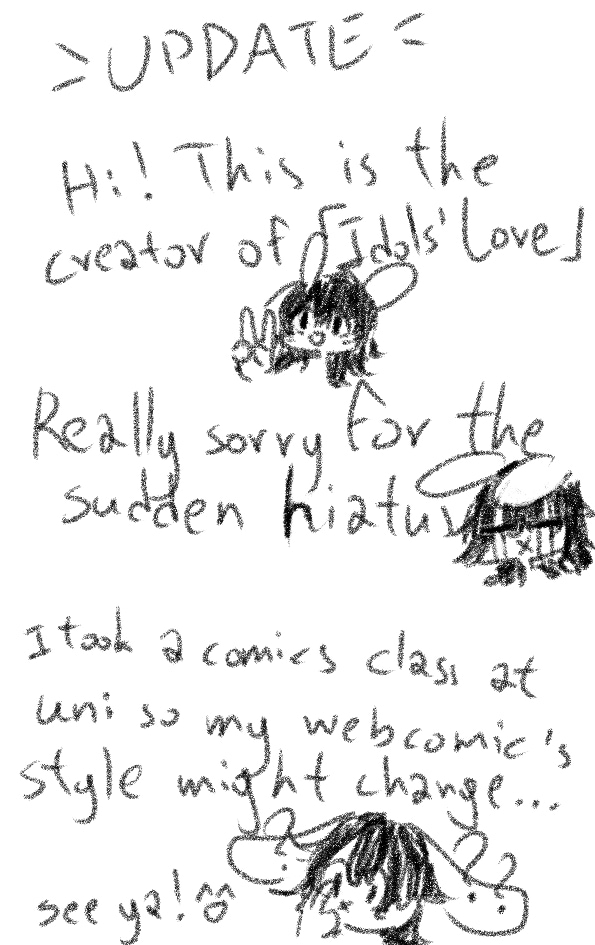 >UPDATE<
Hi! This is the
creator of 「Idols' Love」
Really sorry for the
sudden hiatus
I took a comics class at
uni so my webcomic's
style might change...
see ya! ^^
? ? ?